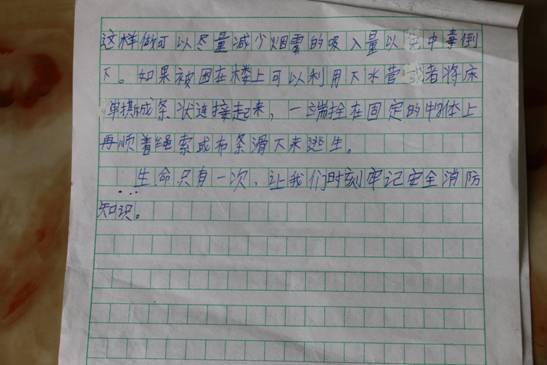 这样做可以尽量减少烟雾的吸入量以免中毒倒
下。如果被困在楼上可以利用下水管或者将床
单撕成条状连接起来，一端拴在固定的物体上
再顺着绳索或布条滑下来逃生。
生命只有一次，让我们时刻牢记安全消防
知识。